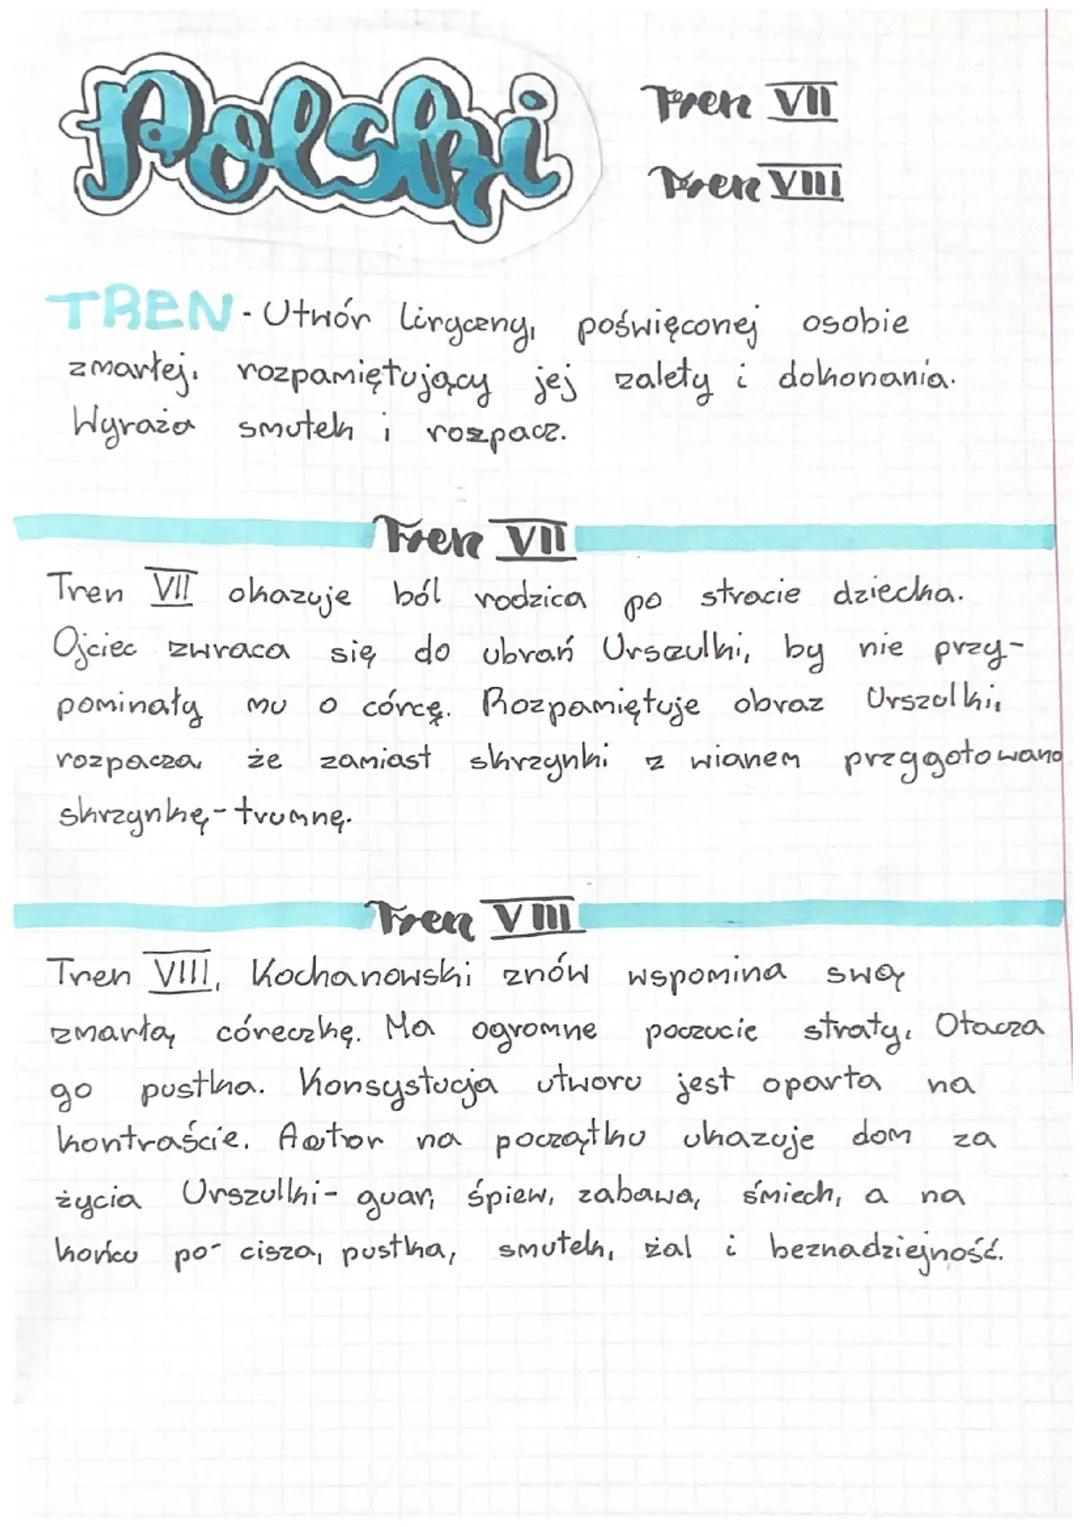 Polski
Tren VII
Tren VIII
TREN - Utwór liryczny, poświęconej osobie
zmarłej, rozpamiętujący jej zalety i dokonania.
Wyraża smutek i rozpacz.
Tren VII
Tren VII okazuje ból rodzica po stracie dziecka.
Ojciec zwraca się do ubrań Urszulki, by nie przy-
pominały mu o córcę. Rozpamiętuje obraz Urszulki,
rozpacza, że zamiast skrzynki z wianem przygotowano
skrzynkę - trumnę.
Tren VIII
Tren VIII, Kochanowski znów wspomina swą
zmarłą córeczkę. Ma ogromne poczucie straty. Otacza
go pustka. Konsystucja utworu jest oparta na
kontraście. Autor na początku ukazuje dom za
życia Urszulki - gwar, śpiew, zabawa, śmiech, a na
końcu po - cisza, pustka, smutek, żal i beznadziejność.